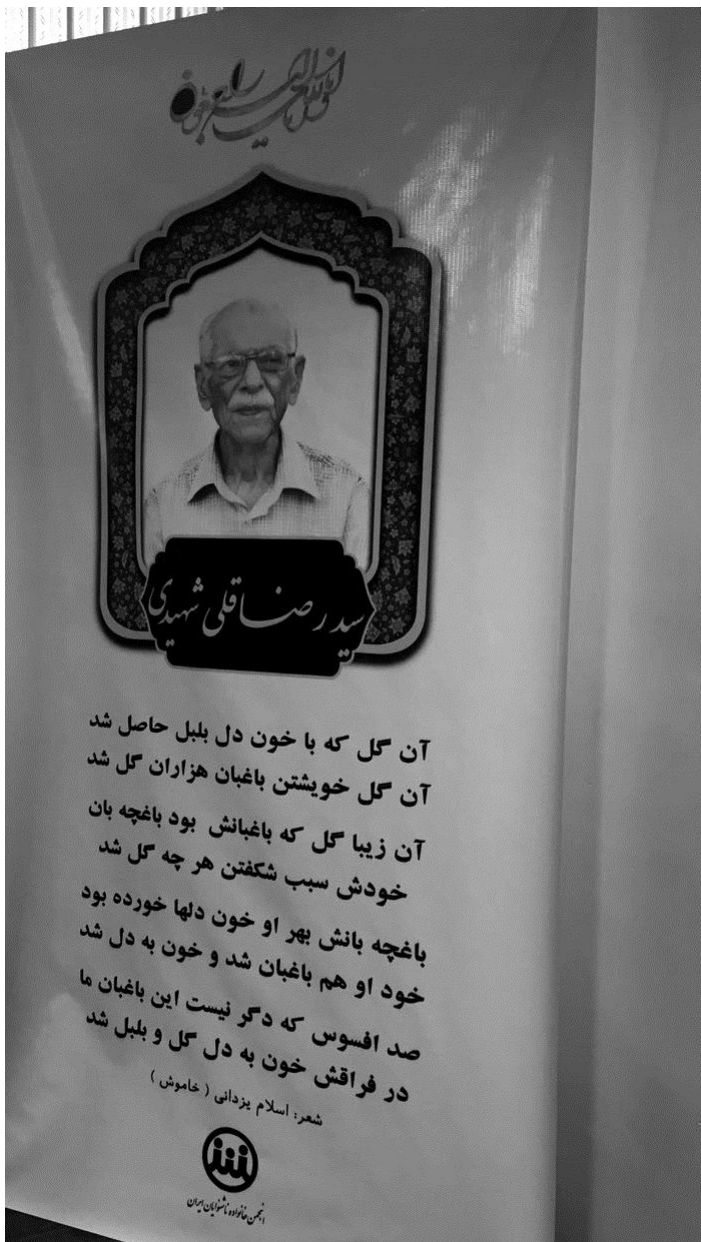 انا لله و انا الیه راجعون
سید رضاقلی شهیدی
آن گل که با خون دل بلبل حاصل شد
آن گل خویشتن باغبان هزاران گل شد
آن زیبا گل که باغبانش بود باغچه بان
خودش سبب شکفتن هر چه گل شد
باغچه بانش بهر او خون دلها خورده بود
خود او هم باغبان شد و خون به دل شد
صد افسوس که دگر نیست این باغبان ما
در فراقش خون به دل گل و بلبل شد
شعر: اسلام یزدانی ( خاموش )
انجمن خانواده ناشنوایان ایران